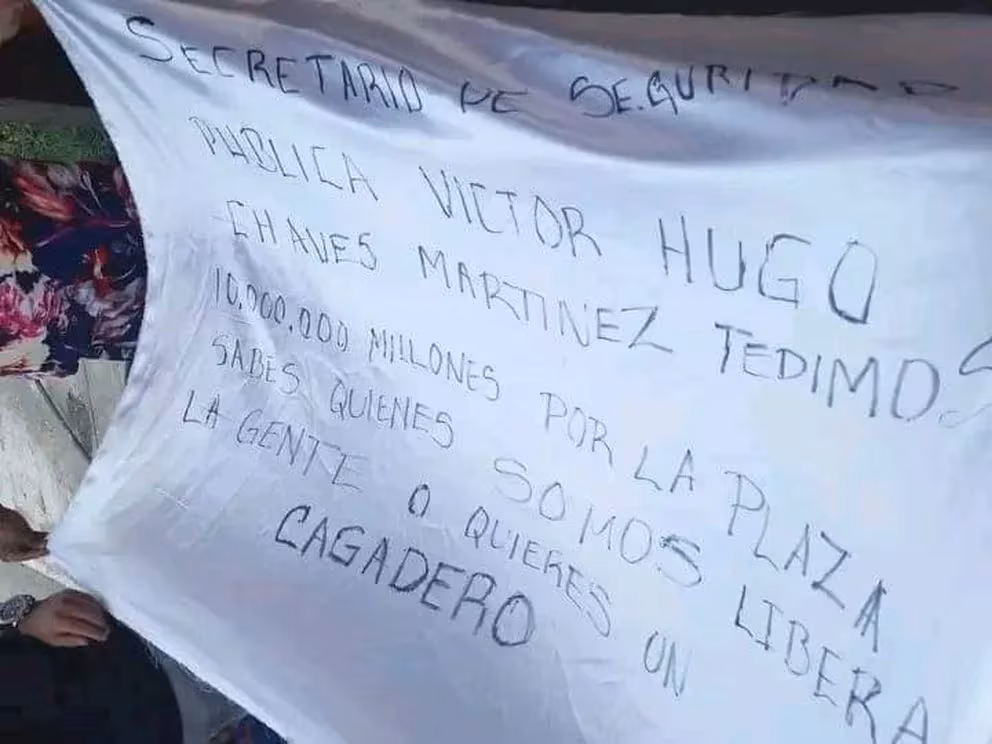 SECRETARIO DE SE.GURIDAD
PUBLICA VICTOR HUGO
CHAVES MARTINEZ TEDIMOS
10.000.000 MILLONES POR LA PLAZA
SABES QUIENES SOMOS LIBERA
LA GENTE O QUIERES UN
CAGADERO